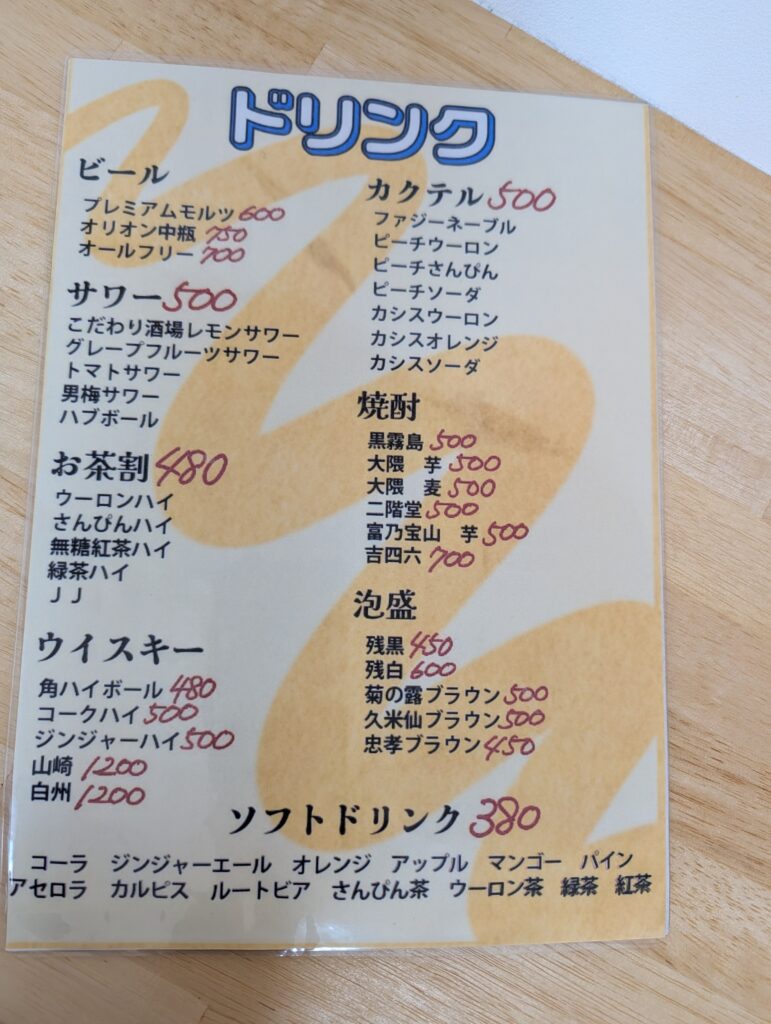 ドリンク
ビール
プレミアムモルツ 600
オリオン中瓶 750
オールフリー 700
サワー 500
こだわり酒場レモンサワー
グレープフルーツサワー
トマトサワー
男梅サワー
ハブボール
お茶割 480
ウーロンハイ
さんぴんハイ
無糖紅茶ハイ
緑茶ハイ
ＪＪ
ウイスキー
角ハイボール 480
コークハイ 500
ジンジャーハイ 500
山崎 1200
白州 1200
カクテル 500
ファジーネーブル
ピーチウーロン
ピーチさんぴん
ピーチソーダ
カシスウーロン
カシスオレンジ
カシスソーダ
焼酎
黒霧島 500
大隈　芋 500
大隈　麦 500
二階堂 500
富乃宝山　芋 500
吉四六 700
泡盛
残黒 450
残白 600
菊の露ブラウン 500
久米仙ブラウン 500
忠孝ブラウン 450
ソフトドリンク 380
コーラ　ジンジャーエール　オレンジ　アップル　マンゴー　パイン
アセロラ　カルピス　ルートビア　さんぴん茶　ウーロン茶　緑茶　紅茶